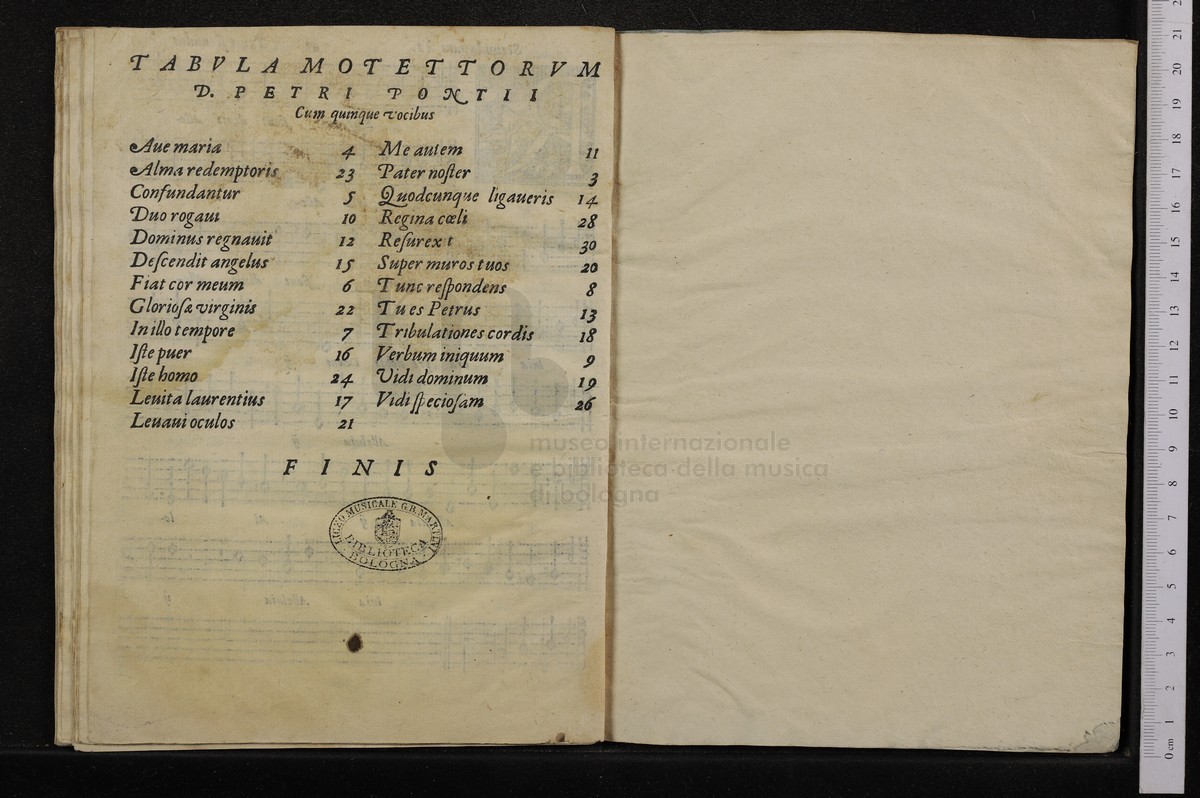 TABVLA MOTETTORVM
D. PETRI PONTII
Cum quinque vocibus
Aue maria 4
Alma redemptoris 23
Confundantur 5
Duo rogaui 10
Dominus regnauit 12
Deſcendit angelus 15
Fiat cor meum 6
Glorioſæ virginis 22
In illo tempore 7
Iſte puer 16
Iſte homo 24
Leuita laurentius 17
Leuaui oculos 21
Me autem 11
Pater noſter 3
Quodcunque ligaueris 14
Regina cœli 28
Reſurex t 30
Super muros tuos 20
Tunc reſpondens 8
Tu es Petrus 13
Tribulationes cordis 18
Verbum iniquum 9
Vidi dominum 19
Vidi ſpecioſam 26
FINIS
LICEO MUSICALE G.B. MARTINI
BIBLIOTECA
BOLOGNA
museo internazionale
e biblioteca della musica
di bologna
0 cm 1 2 3 4 5 6 7 8 9 10 11 12 13 14 15 16 17 18 19 20 21